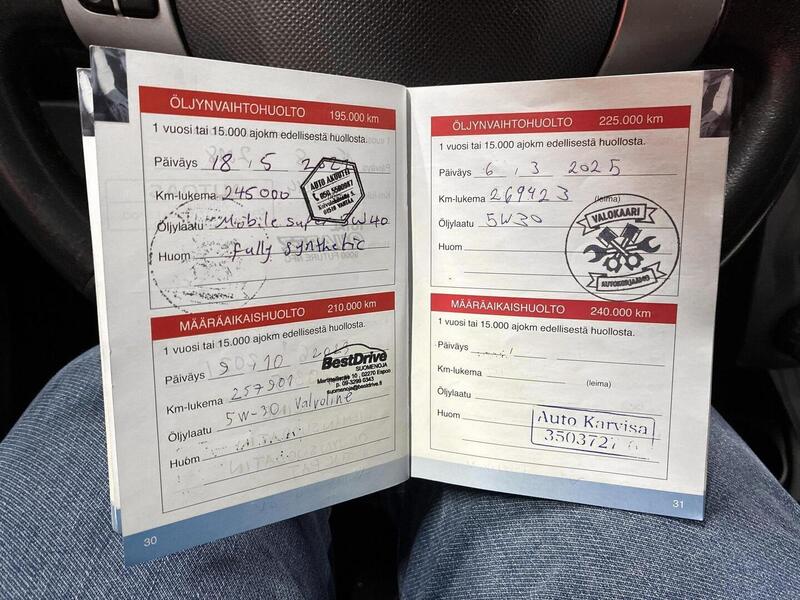 ÖLJYNVAIHTOHUOLTO 195.000 km
1 vuosi tai 15.000 ajokm edellisestä huollosta.
Päiväys 18 . 5
Km-lukema 245000
Öljylaatu Mobile super W40
Huom fully synthetic
AUTO AKUUTTI
050 5500087
01510 VANTAA
MÄÄRÄAIKAISHUOLTO 210.000 km
1 vuosi tai 15.000 ajokm edellisestä huollosta.
Päiväys 9 . 10
Km-lukema 257901
Öljylaatu 5W-30 Valvoline
Huom
BestDrive
SUOMENOJA
Martinsillantie 10 , 02270 Espoo
p. 09-3299 0343
suomenoja@bestdrive.fi
30
ÖLJYNVAIHTOHUOLTO 225.000 km
1 vuosi tai 15.000 ajokm edellisestä huollosta.
Päiväys 6 . 3 2025
Km-lukema 269423 (leima)
Öljylaatu 5W30
Huom
VALOKAARI
AUTOKORJAAMO
MÄÄRÄAIKAISHUOLTO 240.000 km
1 vuosi tai 15.000 ajokm edellisestä huollosta.
Päiväys
Km-lukema
(leima)
Öljylaatu
Huom
Auto Karvisa
31